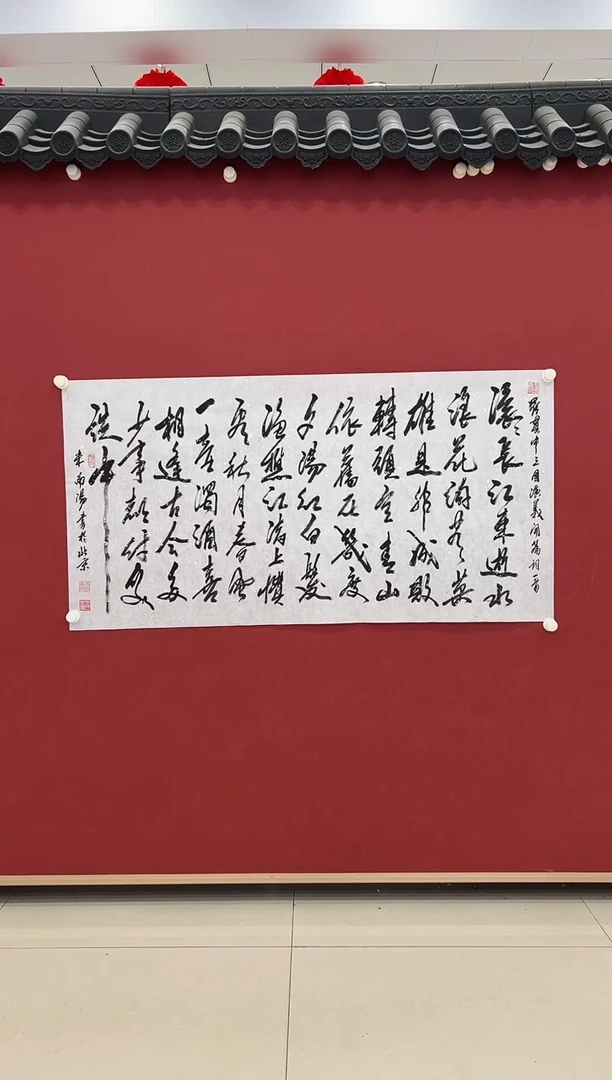 羅貫中三国演義開篇詞一首
滚〻長江東逝水
浪花淘尽英
雄是非成敗
轉頭空青山
依舊在幾度
夕陽紅白髮
漁樵江渚上慣
看秋月春風
一壺濁酒喜
相逢古今多
少事都付笑
談中
南陽書於北京